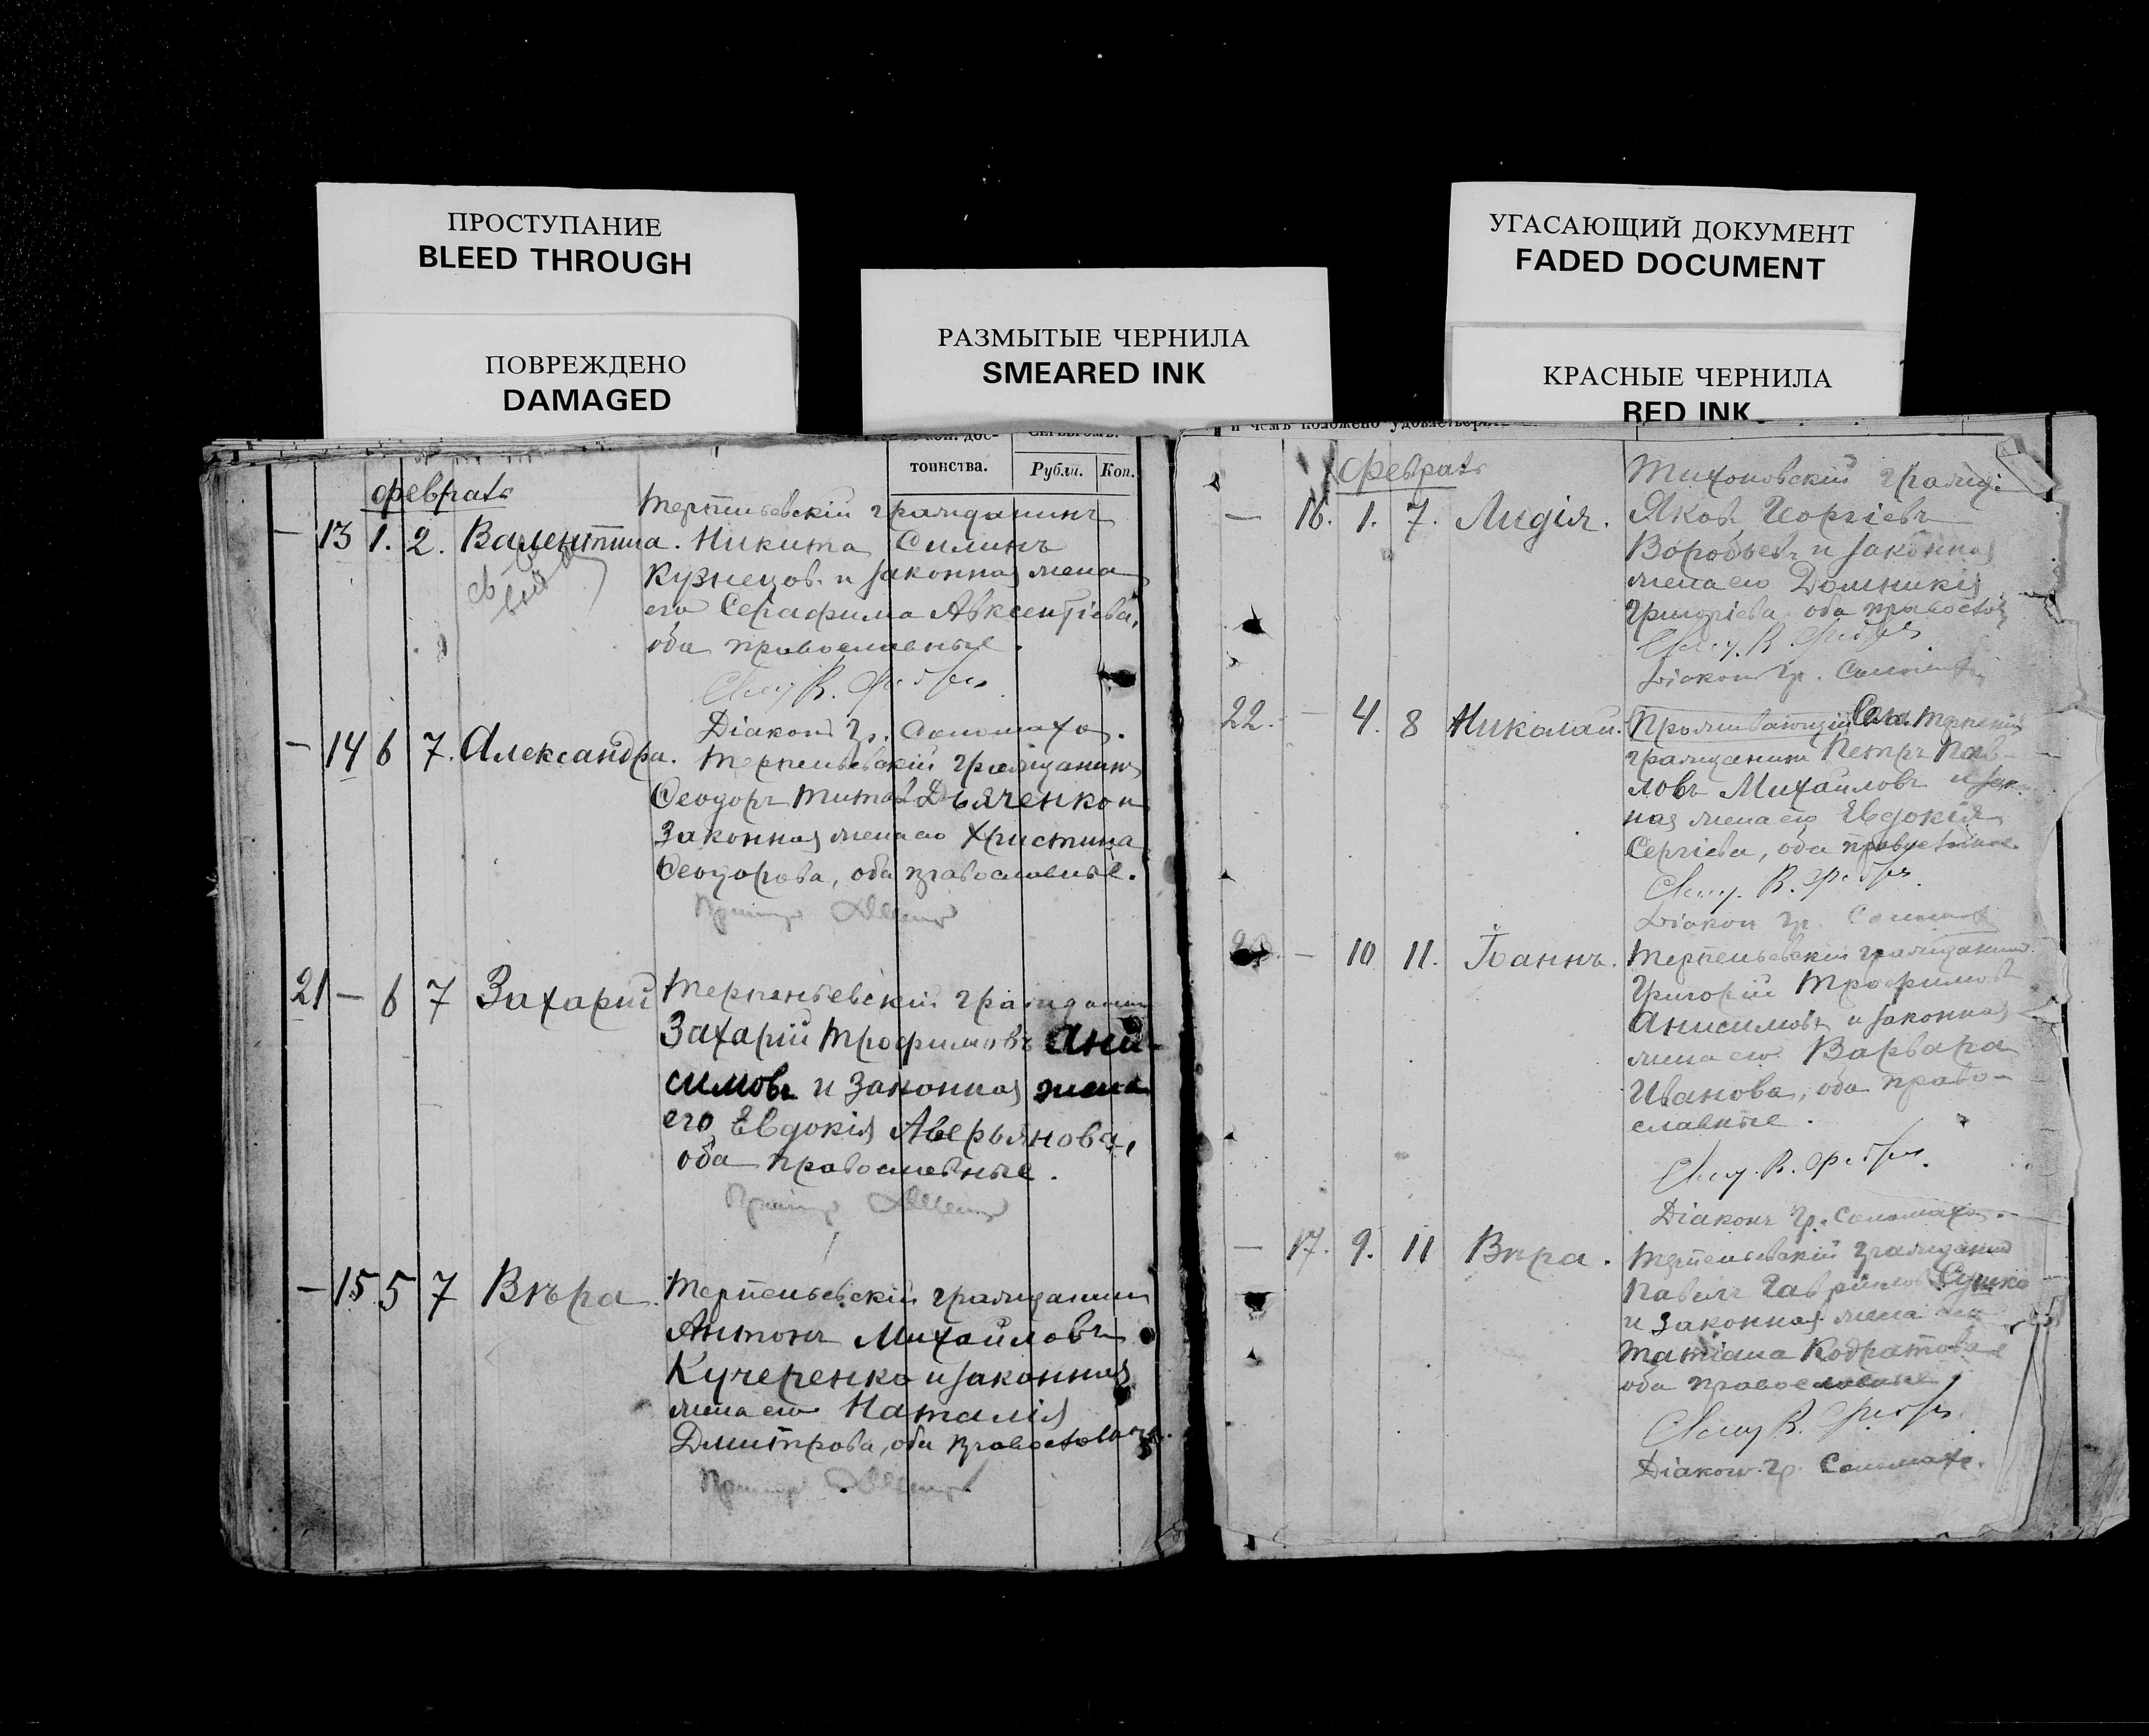 ПРОСТУПАНИЕ
BLEED THROUGH
ПОВРЕЖДЕНО
DAMAGED
РАЗМЫТЫЕ ЧЕРНИЛА
SMEARED INK
УГАСАЮЩИЙ ДОКУМЕНТ
FADED DOCUMENT
КРАСНЫЕ ЧЕРНИЛА
RED INK
тоинства. Рубли. Коп.
февраль
Терпеньевскій гражданинъ
— 13 1. 2. Валентина. Никита Силинъ
Кузнецовъ и законная жена
его Серафима Авксентіева,
оба православные.
Діаконъ Гр. Соломаха.
— 14 6 7. Александра. Терпеньевскій гражданинъ
Феодоръ Титовъ Дьяченко и
законная жена его Христина
Феодорова, оба православные.
21 — 6 7 Захарій Терпеньевскій гражданинъ
Захарій Трофимовъ Ани-
симовъ и законная жена
его Евдокія Аверьянова,
оба православные.
— 15 5 7 Вѣра. Терпеньевскій гражданинъ
Антонъ Михайловъ
Кучеренко и законная
жена его Наталія
Дмитрова, оба православные.
и чемъ положено
февраль
Тихоновскій гражд.
— 16. 1. 7. Лидія. Яковъ Георгіевъ
Воробьевъ и законная
жена его Домникія
Григоріева, оба православ
Діаконъ Гр. Соломаха
22. — 4. 8 Николай. Проживающій
гражданинъ Петръ Пав-
ловъ Михайловъ и закон
ная жена его Евдокія
Сергіева, оба православные.
Діаконъ Гр. Соломаха
— 10 11. Іоаннъ. Терпеньевскій гражданинъ
Григорій Трофимовъ
Анисимовъ и законная
жена его Варвара
Иванова, оба право-
славные.
Діаконъ Гр. Соломаха.
— 17. 9. 11 Вѣра. Терпеньевскій гражданинъ
Павелъ Гавріиловъ Сушко
и законная жена его
Татіана Кодратова
оба православные
Діаконъ Гр. Соломаха.